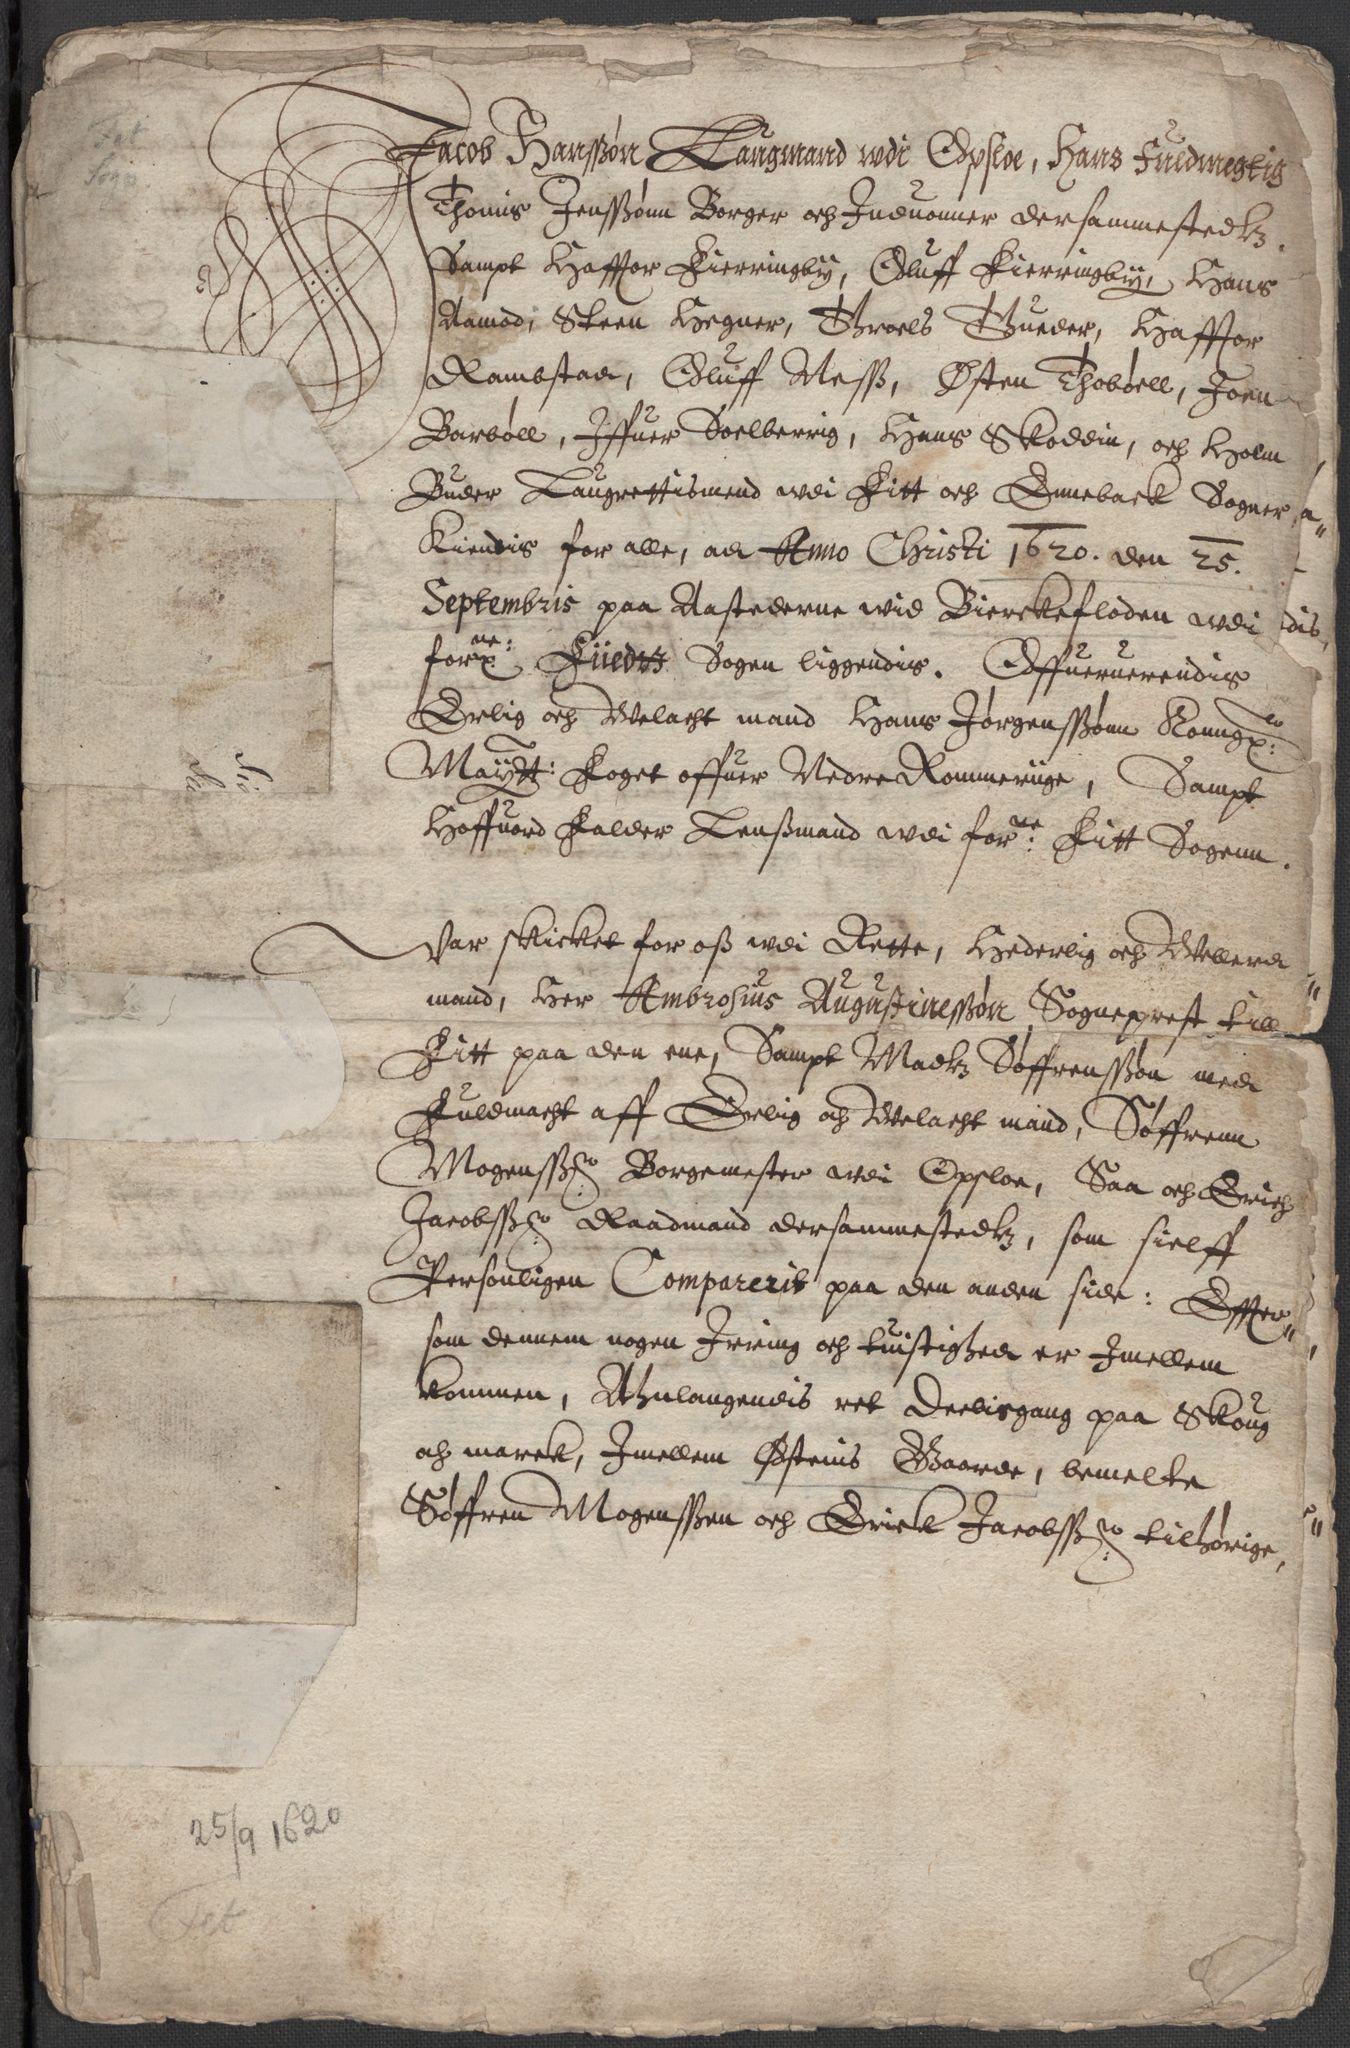 Fet
Sogn
Jacob Hanssøn Laugmand wdi Opsloe, Hans Fuldmegtig
Thomis Jenssønn Borger och Induonner dersammestedtz.
Sampt Haffuor Kierringby, Oluff Kierringby, Hans
Aamod, Steen Hegner, Throels Thueder, Haffuor
Rambstad, Oluff Ness, Østen Thobøell, Joen
Barbøll, Iffuer Soelberrig, Hans Skoddin, och Holm
Buder Laugrettismend wdi Fitt och Enneback Sogner,
Kiendis for alle, at Anno Christi 1620. den 25.
Septembris paa Aastederne wid Bierckefloden wdi
forne: Fiedtz Sogen liggendis. Offueruerendis
Erlig och Welacht mand Hans Jørgenssønn Konngx:
Maytt: Foget offuer Nedre Rommeriige, Sampt
Haffuord Falder Lenssmand wdi forne: Fitt Sogenn.
Var skicket for oss wdi Rette, Hederlig och Wellerd
mand, Her Ambrosius Augustinessøn Sogneprest till
Fitt paa den ene, Sampt Madtz Søffrenssøn med
Fuldmacht aff Erlig och Welacht mand, Søffrenn
Mogenss: Borgemester wdi Opsloe, Saa och Erich
Jacobss: Raadmand dersammestedtz, som sielff
Personligen Comparerit paa den anden side: Effter
som dennem nogen Irring och tuistighed er Imellem
kommen, Anlangendis ret Deelisgang paa Skoug
och marck, Imellem Østenis Gaarde, bemelte
Søffren Mogenssen och Erick Jacobss: tilhørige,
25/9 1620
Fet